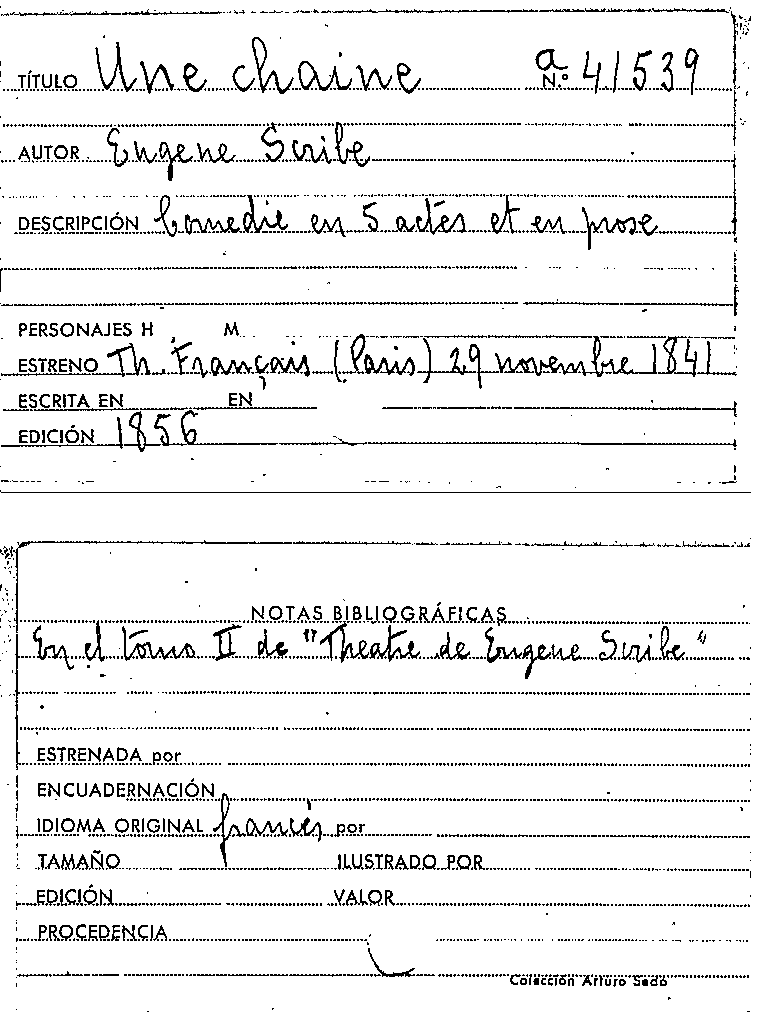 TÍTULO Une chaine a N.º 41539
AUTOR Eugene Scribe
DESCRIPCIÓN Comedie en 5 actes et en prose
PERSONAJES H M
ESTRENO Th. Français (Paris) 29 novembre 1841
ESCRITA EN EN
EDICIÓN 1856
NOTAS BIBLIOGRÁFICAS
En el tomo II de "Theatre de Eugene Scribe"
ESTRENADA por
ENCUADERNACIÓN
IDIOMA ORIGINAL francés por
TAMAÑO ILUSTRADO POR
EDICIÓN VALOR
PROCEDENCIA
Colección Arturo Sedó